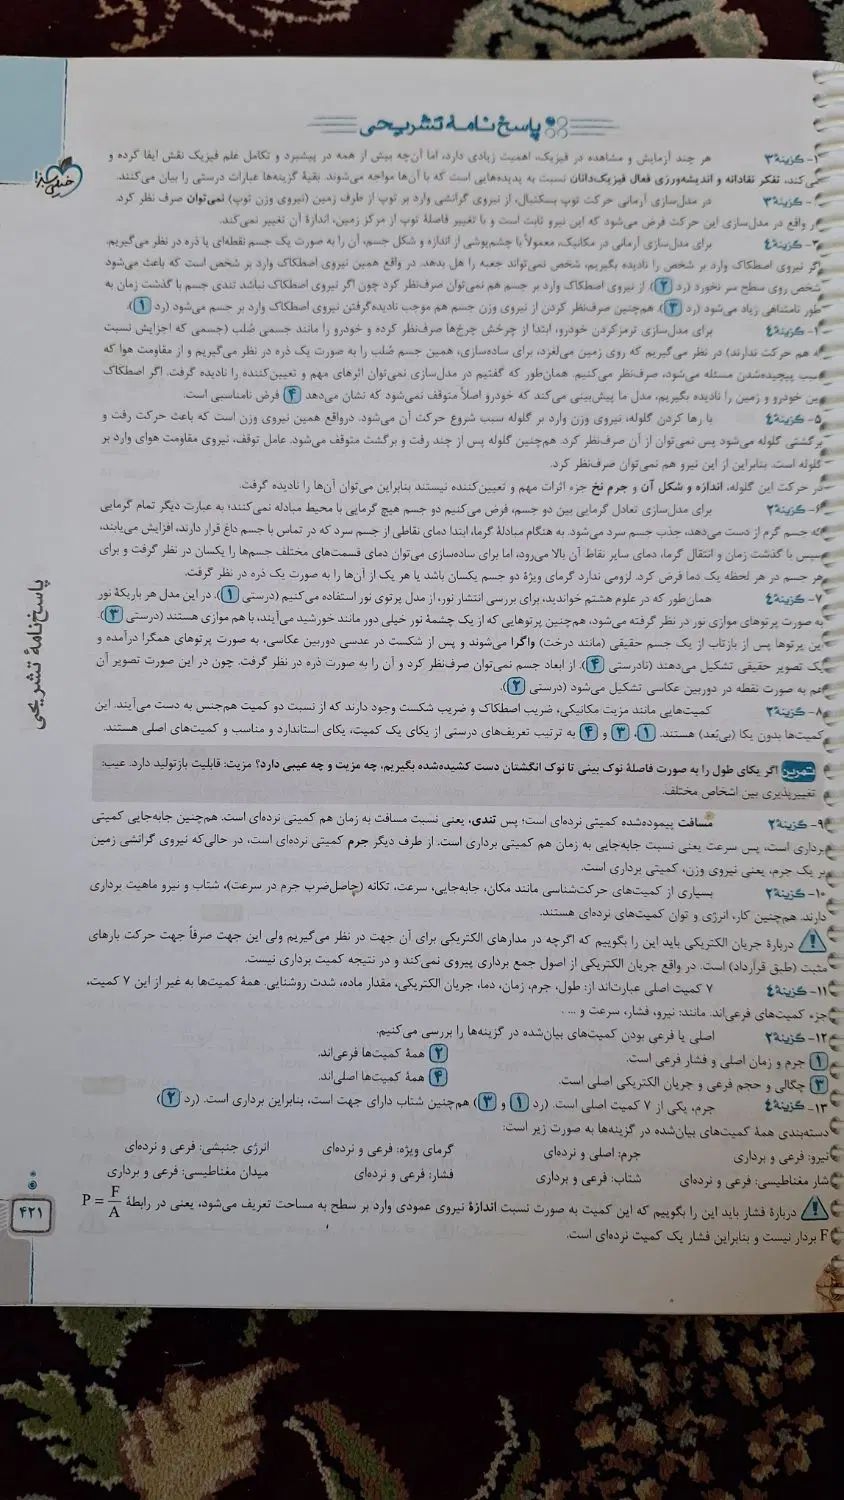 پاسخ‌نامهٔ تشریحی
خیلی سبز
۱- گزینهٔ ۳ هر چند آزمایش و مشاهده در فیزیک، اهمیت زیادی دارد، اما آن‌چه بیش از همه در پیشبرد و تکامل علم فیزیک نقش ایفا کرده و
می‌کند، تفکر نقادانه و اندیشه‌ورزی فعال فیزیک‌دانان نسبت به پدیده‌هایی است که با آن‌ها مواجه می‌شوند. بقیهٔ گزینه‌ها عبارات درستی را بیان می‌کنند.
- گزینهٔ ۳ در مدل‌سازی آرمانی حرکت توپ بسکتبال، از نیروی گرانشی وارد بر توپ از طرف زمین (نیروی وزن توپ) نمی‌توان صرف نظر کرد.
در واقع در مدل‌سازی این حرکت فرض می‌شود که این نیرو ثابت است و با تغییر فاصلهٔ توپ از مرکز زمین، اندازهٔ آن تغییر نمی‌کند.
۳- گزینهٔ ۴ برای مدل‌سازی آرمانی در مکانیک، معمولاً با چشم‌پوشی از اندازه و شکل جسم، آن را به صورت یک جسم نقطه‌ای یا ذره در نظر می‌گیریم.
اگر نیروی اصطکاک وارد بر شخص را نادیده بگیریم، شخص نمی‌تواند جعبه را هل بدهد. در واقع همین نیروی اصطکاک وارد بر شخص است که باعث می‌شود
شخص روی سطح سر نخورد (رد ۲). از نیروی اصطکاک وارد بر جسم هم نمی‌توان صرف‌نظر کرد چون اگر نیروی اصطکاک نباشد تندی جسم با گذشت زمان به
طور نامتناهی زیاد می‌شود (رد ۳). هم‌چنین صرف‌نظر کردن از نیروی وزن جسم هم موجب نادیده‌گرفتن نیروی اصطکاک وارد بر جسم می‌شود (رد ۱).
- گزینهٔ ۴ برای مدل‌سازی ترمزکردن خودرو، ابتدا از چرخش چرخ‌ها صرف‌نظر کرده و خودرو را مانند جسمی صُلب (جسمی که اجزایش نسبت
به هم حرکت ندارند) در نظر می‌گیریم که روی زمین می‌لغزد، برای ساده‌سازی، همین جسم صُلب را به صورت یک ذره در نظر می‌گیریم و از مقاومت هوا که
سبب پیچیده‌شدن مسئله می‌شود، صرف‌نظر می‌کنیم. همان‌طور که گفتیم در مدل‌سازی نمی‌توان اثرهای مهم و تعیین‌کننده را نادیده گرفت. اگر اصطکاک
بین خودرو و زمین را نادیده بگیریم، مدل ما پیش‌بینی می‌کند که خودرو اصلاً متوقف نمی‌شود که نشان می‌دهد ۴ فرض نامناسبی است.
۵- گزینهٔ ۴ با رها کردن گلوله، نیروی وزن وارد بر گلوله سبب شروع حرکت آن می‌شود. درواقع همین نیروی وزن است که باعث حرکت رفت و
برگشتی گلوله می‌شود پس نمی‌توان از آن صرف‌نظر کرد. هم‌چنین گلوله پس از چند رفت و برگشت متوقف می‌شود. عامل توقف، نیروی مقاومت هوای وارد بر
گلوله است. بنابراین از این نیرو هم نمی‌توان صرف‌نظر کرد.
در حرکت این گلوله، اندازه و شکل آن و جرم نخ جزء اثرات مهم و تعیین‌کننده نیستند بنابراین می‌توان آن‌ها را نادیده گرفت.
۶- گزینهٔ ۲ برای مدل‌سازی تعادل گرمایی بین دو جسم، فرض می‌کنیم دو جسم هیچ گرمایی با محیط مبادله نمی‌کنند؛ به عبارت دیگر تمام گرمایی
که جسم گرم از دست می‌دهد، جذب جسم سرد می‌شود. به هنگام مبادلهٔ گرما، ابتدا دمای نقاطی از جسم سرد که در تماس با جسم داغ قرار دارند، افزایش می‌یابند،
سپس با گذشت زمان و انتقال گرما، دمای سایر نقاط آن بالا می‌رود، اما برای ساده‌سازی می‌توان دمای قسمت‌های مختلف جسم‌ها را یکسان در نظر گرفت و برای
هر جسم در هر لحظه یک دما فرض کرد. لزومی ندارد گرمای ویژهٔ دو جسم یکسان باشد یا هر یک از آن‌ها را به صورت یک ذره در نظر گرفت.
۷- گزینهٔ ۴ همان‌طور که در علوم هشتم خواندید، برای بررسی انتشار نور، از مدل پرتوی نور استفاده می‌کنیم (درستی ۱). در این مدل هر باریکهٔ نور
به صورت پرتوهای موازی نور در نظر گرفته می‌شود، هم‌چنین پرتوهایی که از یک چشمهٔ نور خیلی دور مانند خورشید می‌آیند، با هم موازی هستند (درستی ۳).
این پرتوها پس از بازتاب از یک جسم حقیقی (مانند درخت) واگرا می‌شوند و پس از شکست در عدسی دوربین عکاسی، به صورت پرتوهای همگرا درآمده و
یک تصویر حقیقی تشکیل می‌دهند (نادرستی ۴). از ابعاد جسم نمی‌توان صرف‌نظر کرد و آن را به صورت ذره در نظر گرفت. چون در این صورت تصویر آن
هم به صورت نقطه در دوربین عکاسی تشکیل می‌شود (درستی ۲).
۸- گزینهٔ ۲ کمیت‌هایی مانند مزیت مکانیکی، ضریب اصطکاک و ضریب شکست وجود دارند که از نسبت دو کمیت هم‌جنس به دست می‌آیند. این
کمیت‌ها بدون یکا (بی‌بُعد) هستند. ۱، ۳ و ۴ به ترتیب تعریف‌های درستی از یکای یک کمیت، یکای استاندارد و مناسب و کمیت‌های اصلی هستند.
تمرین اگر یکای طول را به صورت فاصلهٔ نوک بینی تا نوک انگشتان دست کشیده‌شده بگیریم، چه مزیت و چه عیبی دارد؟ مزیت: قابلیت بازتولید دارد. عیب:
تغییرپذیری بین اشخاص مختلف.
۹- گزینهٔ ۲ مسافت پیموده‌شده کمیتی نرده‌ای است؛ پس تندی، یعنی نسبت مسافت به زمان هم کمیتی نرده‌ای است. هم‌چنین جابه‌جایی کمیتی
برداری است، پس سرعت یعنی نسبت جابه‌جایی به زمان هم کمیتی برداری است. از طرف دیگر جرم کمیتی نرده‌ای است، در حالی‌که نیروی گرانشی زمین
بر یک جرم، یعنی نیروی وزن، کمیتی برداری است.
۱۰- گزینهٔ ۲ بسیاری از کمیت‌های حرکت‌شناسی مانند مکان، جابه‌جایی، سرعت، تکانه (حاصل‌ضرب جرم در سرعت)، شتاب و نیرو ماهیت برداری
دارند. هم‌چنین کار، انرژی و توان کمیت‌های نرده‌ای هستند.
! دربارهٔ جریان الکتریکی باید این را بگوییم که اگرچه در مدارهای الکتریکی برای آن جهت در نظر می‌گیریم ولی این جهت صرفاً جهت حرکت بارهای
مثبت (طبق قرارداد) است. در واقع جریان الکتریکی از اصول جمع برداری پیروی نمی‌کند و در نتیجه کمیت برداری نیست.
۱۱- گزینهٔ ۴ ۷ کمیت اصلی عبارت‌اند از: طول، جرم، زمان، دما، جریان الکتریکی، مقدار ماده، شدت روشنایی. همهٔ کمیت‌ها به غیر از این ۷ کمیت،
جزء کمیت‌های فرعی‌اند. مانند: نیرو، فشار، سرعت و ... .
۱۲- گزینهٔ ۲ اصلی یا فرعی بودن کمیت‌های بیان‌شده در گزینه‌ها را بررسی می‌کنیم.
۱ جرم و زمان اصلی و فشار فرعی است. ۲ همهٔ کمیت‌ها فرعی‌اند.
۳ چگالی و حجم فرعی و جریان الکتریکی اصلی است. ۴ همهٔ کمیت‌ها اصلی‌اند.
۱۳- گزینهٔ ۴ جرم، یکی از ۷ کمیت اصلی است. (رد ۱ و ۳) هم‌چنین شتاب دارای جهت است، بنابراین برداری است. (رد ۲)
دسته‌بندی همهٔ کمیت‌های بیان‌شده در گزینه‌ها به صورت زیر است:
نیرو: فرعی و برداری جرم: اصلی و نرده‌ای گرمای ویژه: فرعی و نرده‌ای انرژی جنبشی: فرعی و نرده‌ای
شار مغناطیسی: فرعی و نرده‌ای شتاب: فرعی و برداری فشار: فرعی و نرده‌ای میدان مغناطیسی: فرعی و برداری
! دربارهٔ فشار باید این را بگوییم که این کمیت به صورت نسبت اندازهٔ نیروی عمودی وارد بر سطح به مساحت تعریف می‌شود، یعنی در رابطهٔ P = F/A
F بردار نیست و بنابراین فشار یک کمیت نرده‌ای است.
پاسخ‌نامهٔ تشریحی
۴۲۱